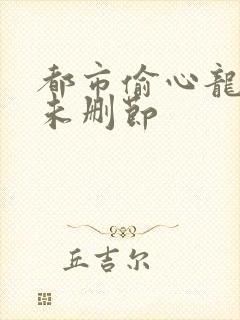 都市偷心龍
未删节
丘吉尔